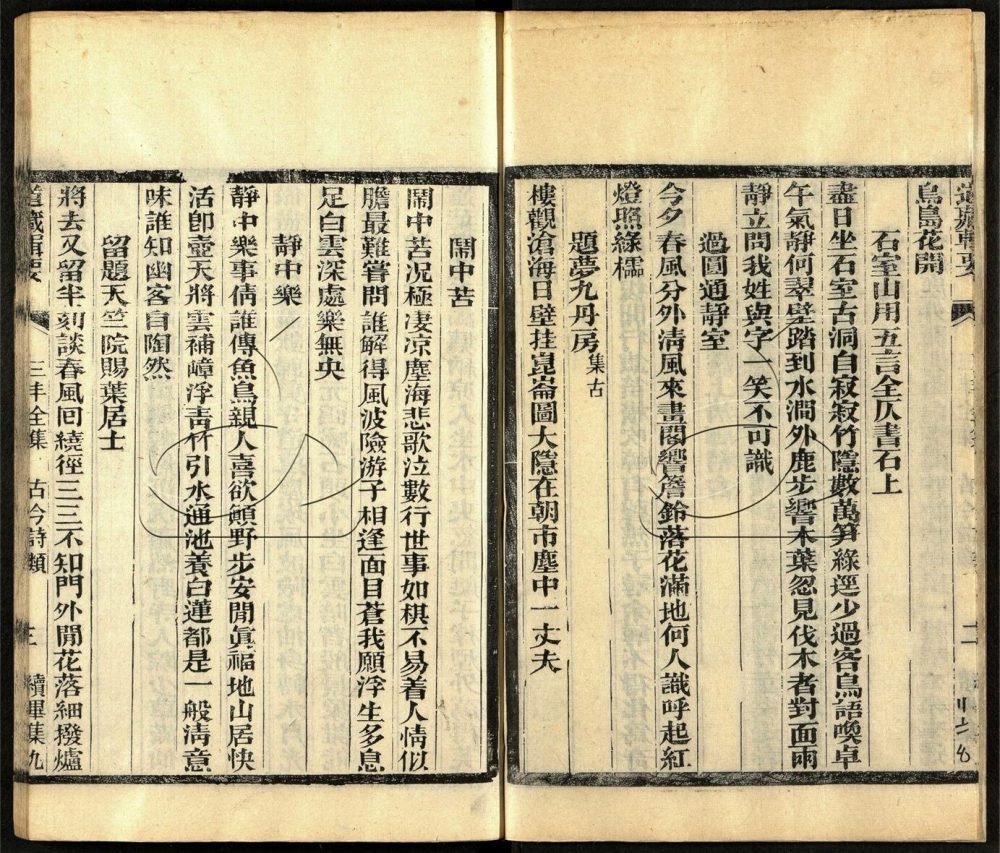 道藏輯要
二
鳥鳥花開
石室山用五言全仄書石上
盡日坐石室古洞自寂寂竹隱數萬笋綠逕少過客鳥語喚卓
午氣靜何翠壁踏到水澗外鹿步響木葉忽見伐木者對面兩
靜立問我姓與字一笑不可識
過圓通靜室
今夕春風分外清風來畫閣響簷鈴落花滿地何人識呼起紅
燈照綠櫺
題夢九丹房集古
樓觀滄海日壁挂崑崙圖大隱在朝市塵中一丈夫
鬧中苦
鬧中苦况極淒凉塵海悲歌泣數行世事如棋不易着人情似
膽最難嘗問誰解得風波險游子相逢面目蒼我願浮生多息
足白雲深處樂無央
靜中樂
靜中樂事倩誰傳魚鳥親人喜欲顛野步安閒眞福地山居快
活卽壺天將雲補嶂浮青竹引水通池養白蓮都是一般清意
味誰知幽客自陶然
留題天竺院賜葉居士
將去又留半刻談春風回繞徑三三不知門外閒花落細撥爐
道藏輯要 三丰全集 古今詩類 三 續畢集九